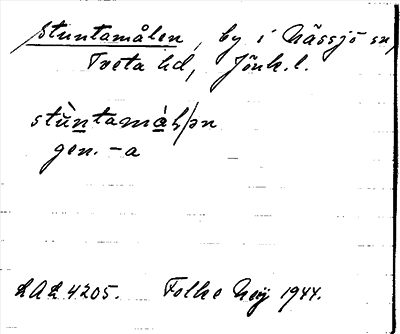 Stuntamålen, by i Nässjö sn,
Tveta hd, Jönk. l.
stùntamàl/ən
gen. -a
LAL 4205. Folke Ney 1944.